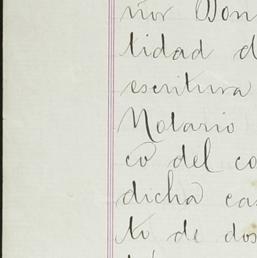 ñor Don
tidad d
escritura
Notario
co del co
dicha cas
to de dos